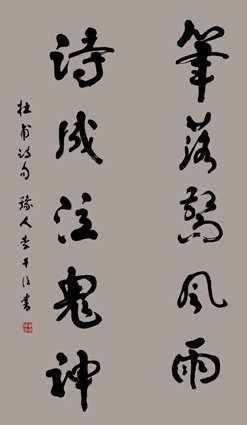 筆落驚風雨
詩成泣鬼神
杜甫詩句 豫人李書